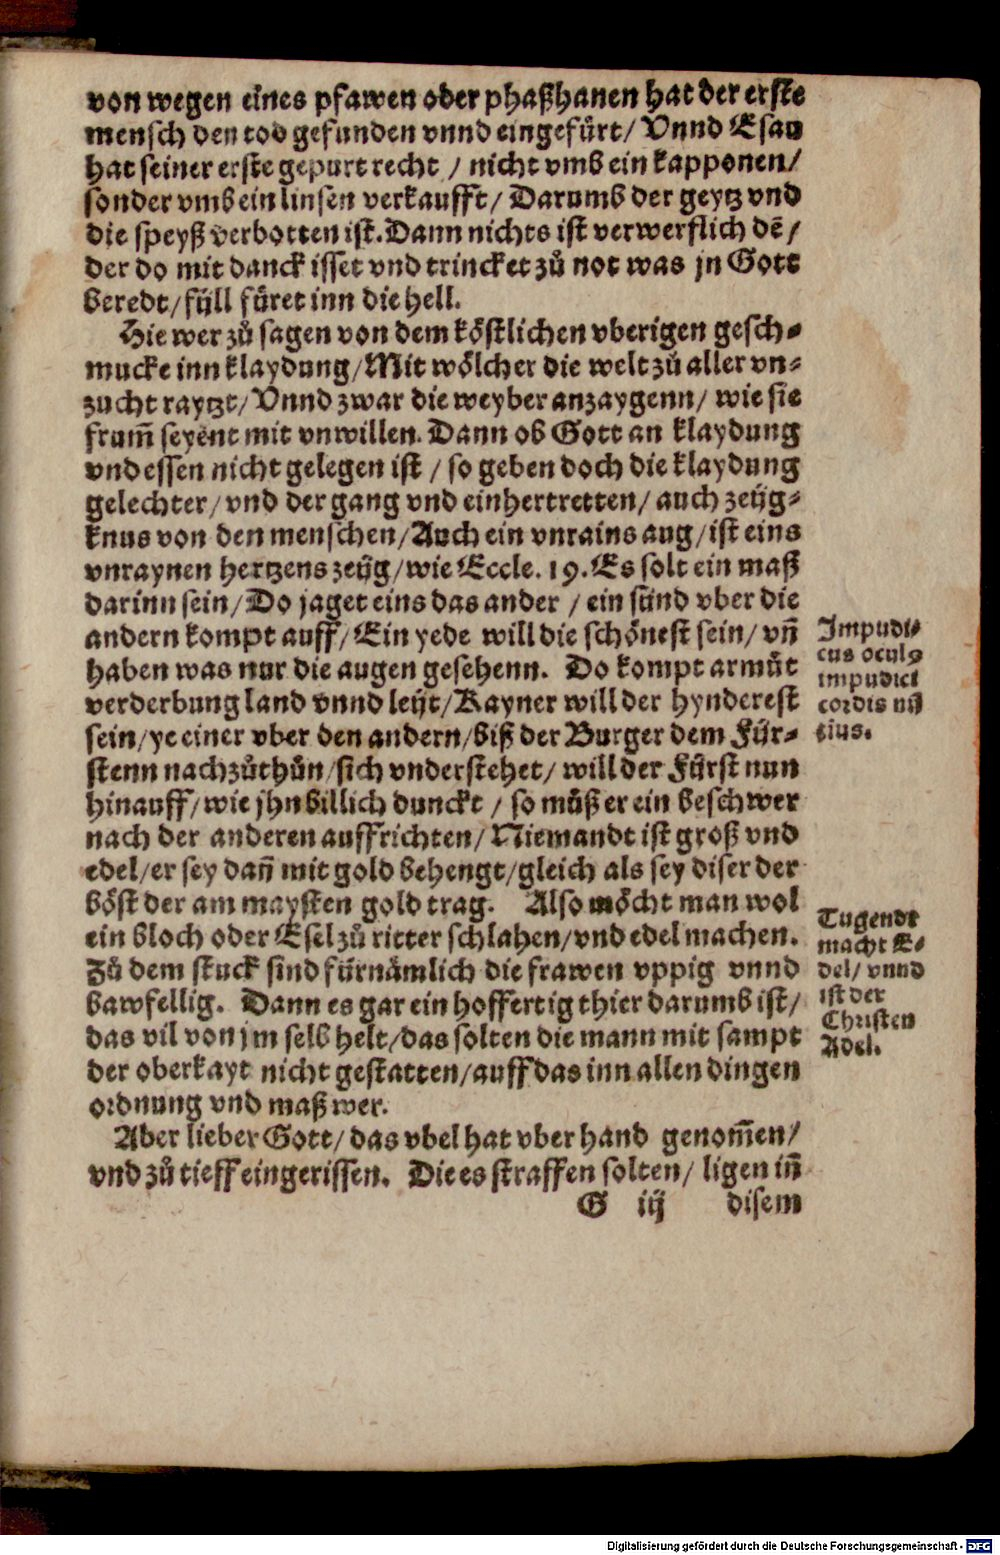 von wegen eines pfawen oder phaßhanen hat der erste
mensch den tod gefunden vnnd eingefürt/ Vnnd Esau
hat seiner erste gepurt recht / nicht vmb ein kapponen/
sonder vmb ein linsen verkaufft/ Darumb der geytz vnd
die speyß verbotten ist. Dann nichts ist verwerflich dē/
der do mit danck isset vnd trincket zů not was jn Gott
beredt/ füll füret inn die hell.
Hie wer zů sagen von dem köstlichen vberigen gesch-
mucke inn klaydung/ Mit wölcher die welt zů aller vn-
zucht raytzt/ Vnnd zwar die weyber anzaygenn/ wie sie
frum̃ seyent mit vnwillen. Dann ob Gott an klaydung
vnd essen nicht gelegen ist / so geben doch die klaydung
gelechter/ vnd der gang vnd einhertretten/ auch zeüg-
knus von den menschen/ Auch ein vnrains aug/ ist eins
vnraynen hertzens zeüg/ wie Eccle. 19. Es solt ein maß
darinn sein/ Do jaget eins das ander / ein sünd vber die
andern kompt auff/ Ein yede will die schönest sein/ vñ
haben was nur die augen gesehenn. Do kompt armůt
verderbung land vnnd leüt/ Kayner will der hynderest
sein/ ye einer vber den andern/ biß der Burger dem Für-
stenn nachzůthůn/ sich vnderstehet/ will der Fürst nun
hinauff/ wie jhn billich dunckt / so můß er ein beschwer
nach der anderen auffrichten/ Niemandt ist groß vnd
edel/ er sey dañ mit gold behengt/ gleich als sey diser der
böst der am maysten gold trag. Also möcht man wol
ein bloch oder Esel zů ritter schlahen/ vnd edel machen.
Zů dem stuck sind fürnämlich die frawen vppig vnnd
bawfellig. Dann es gar ein hoffertig thier darumb ist/
das vil von jm selb helt/ das solten die mann mit sampt
der oberkayt nicht gestatten/ auff das inn allen dingen
ordnung vnd maß wer.
Aber lieber Gott/ das vbel hat vber hand genom̃en/
vnd zů tieff eingerissen. Die es straffen solten/ ligen iñ
G iij disem
Impudi-
cus oculꝰ
impudici
cordis nū
tius.
Tugendt
macht E-
del/ vnnd
ist der
Christen
Adel.
Digitalisierung gefördert durch die Deutsche Forschungsgemeinschaft - DFG